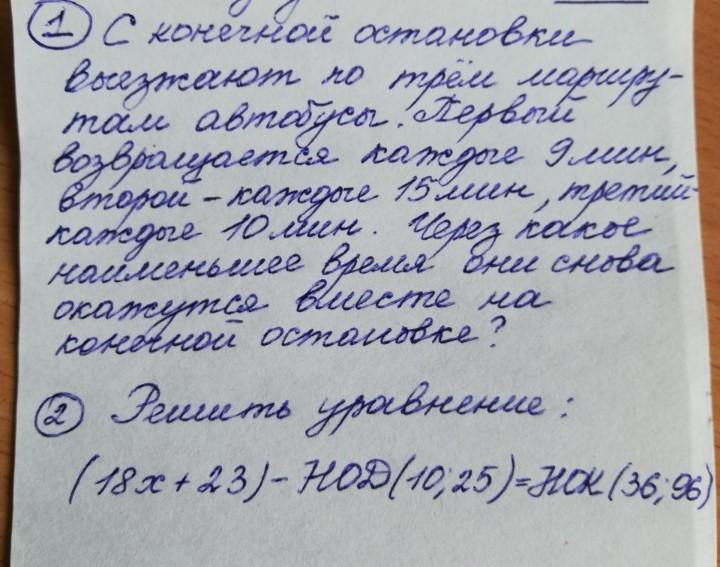 1 С конечной остановки
выезжают по трём маршру-
там автобусы. Первый
возвращается каждые 9 мин,
второй - каждые 15 мин, третий -
каждые 10 мин. Через какое
наименьшее время они снова
окажутся вместе на
конечной остановке?
2 Решить уравнение:
(18x + 23) - НОД(10; 25) = НОК(36; 96)